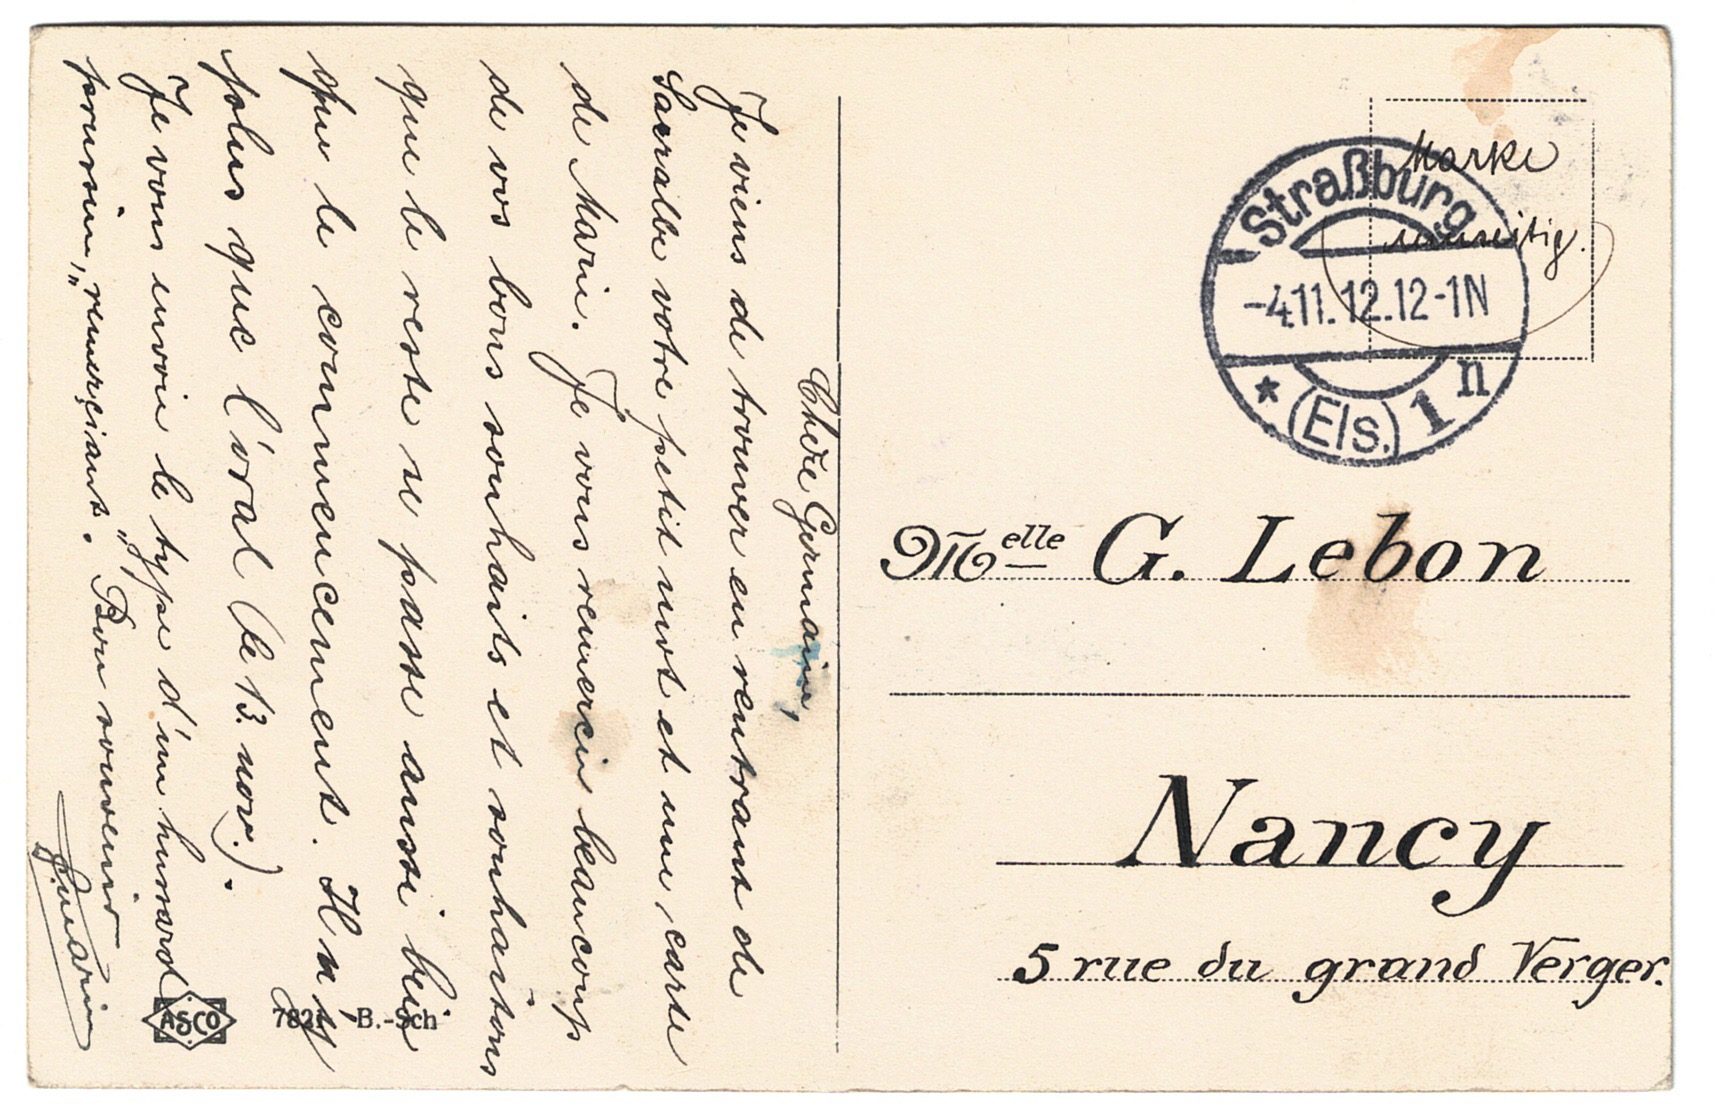 Chère Germaine,
Je viens de trouver en rentrant de
Sarralbe votre petit mot et une carte
de Marie. Je vous remercie beaucoup
de vos bons souhaits et souhaitons
que le reste se passe aussi bien
que le commencement. Il n'y
plus que l'oral (le 13. nov.).
Je vous envoie le type d'un hussard
prussien, "remerçiant". Bon souvenir
Marke
unseitig.
Straßburg
-4.11.12.12-1N
* (Els.) 1 n
Melle G. Lebon
Nancy
5 rue du grand Verger.
ASCO
B.-Sch